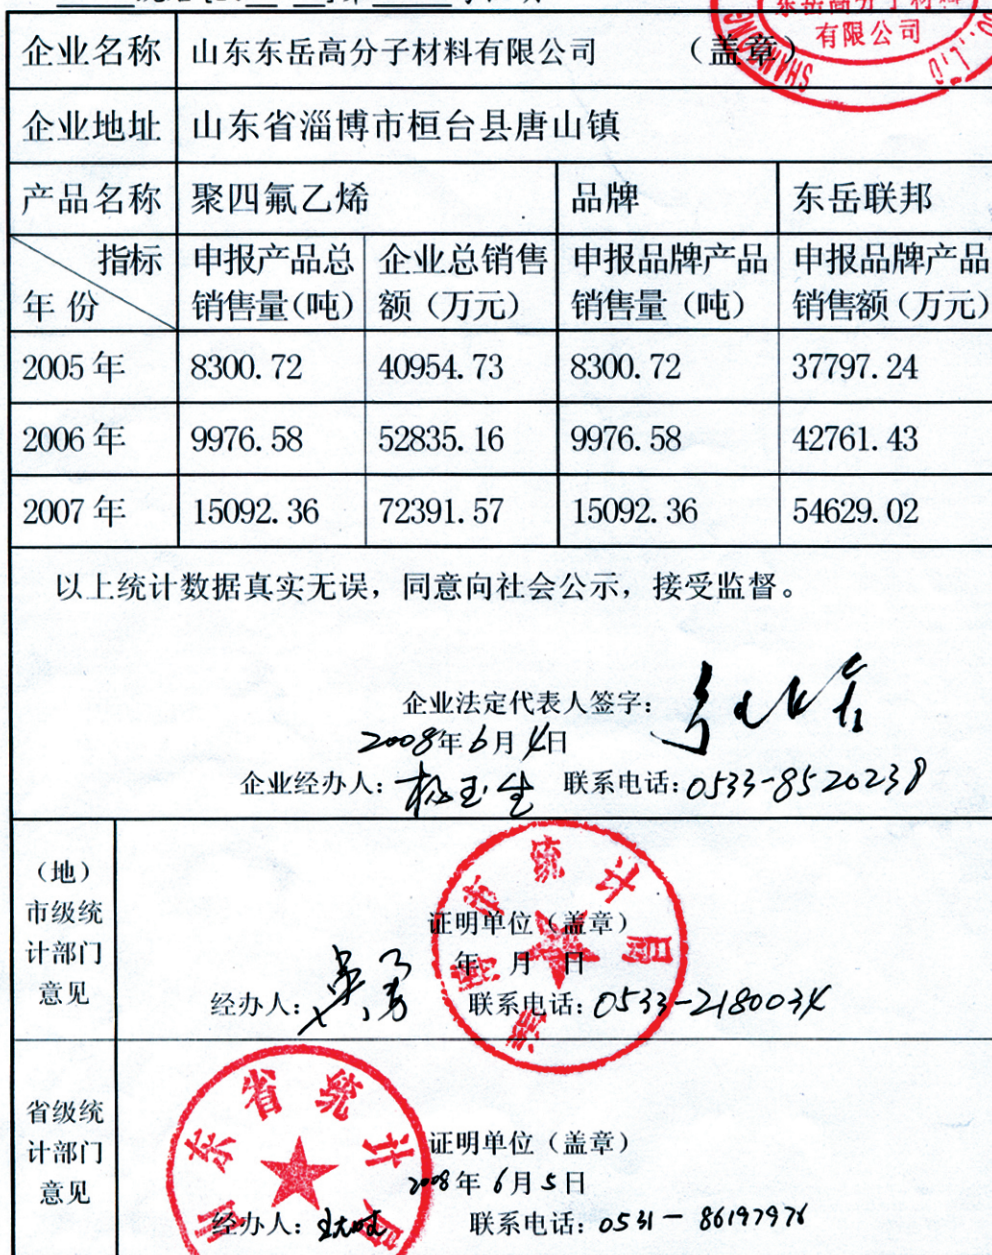 东岳高分子材料
有限公司
SHANDONG
CO., LTD
企业名称 山东东岳高分子材料有限公司 （盖章）
企业地址 山东省淄博市桓台县唐山镇
产品名称 聚四氟乙烯 品牌 东岳联邦
指标 申报产品总 企业总销售 申报品牌产品 申报品牌产品
年 份 销售量（吨） 额（万元） 销售量（吨） 销售额（万元）
2005 年 8300.72 40954.73 8300.72 37797.24
2006 年 9976.58 52835.16 9976.58 42761.43
2007 年 15092.36 72391.57 15092.36 54629.02
以上统计数据真实无误，同意向社会公示，接受监督。
企业法定代表人签字：
2008年6月4日
企业经办人：杨玉生 联系电话：0533-8520238
（地）
市级统
计部门
意见
淄博市统计局
证明单位（盖章）
年 月 日
经办人： 联系电话：0533-2180034
省级统
计部门
意见
山东省统计局
证明单位（盖章）
2008年6月5日
经办人： 联系电话：0531-86197976